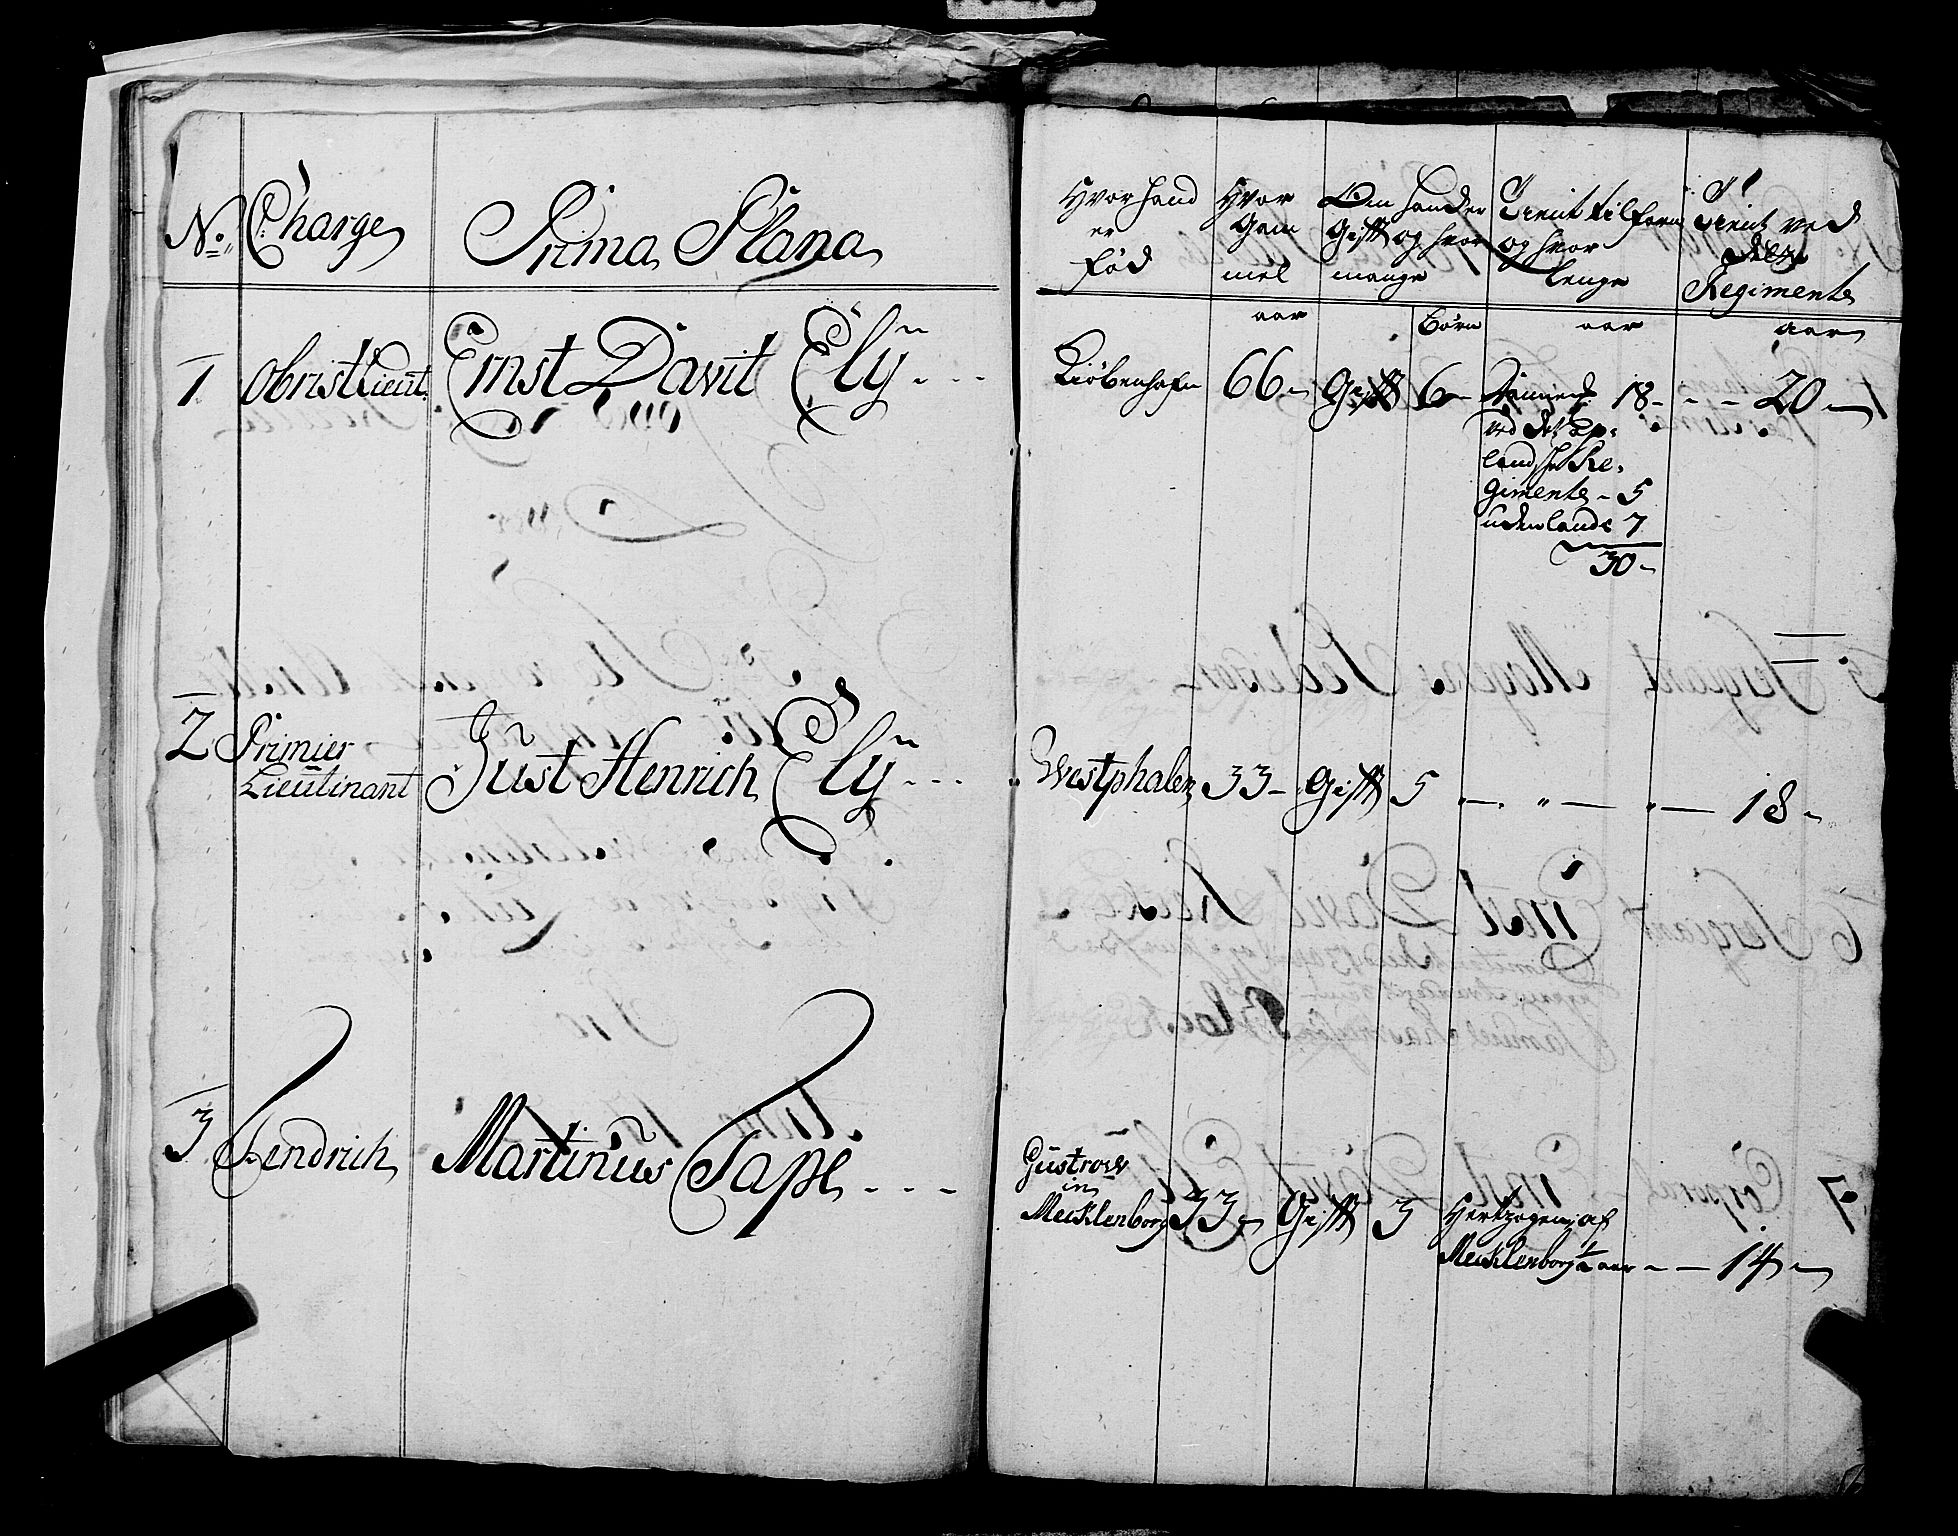 No. Charge Prima Plana
Hvor hand er fød
Hvor Gammel
Om hand er Gift og hvor mange
Tient tilforn og hvor lenge
Tient ved dette Regimente
aar børn aar aar
1 Obristlieut. Ernst Davit Elÿ
Kiøbenhafn 66 Gift 6 18 20
ved det
land
Regimente 5
udenlands 7
30
2 Primier
Lieütinant Just Henrich Elÿ
Westphalen 33 Gift 5 18
3 Fendrich Martinus Tape
Güstrow
in
Mecklenborg 33 Gift 3 Hertzogen af
Mecklenborg ½ aar 14